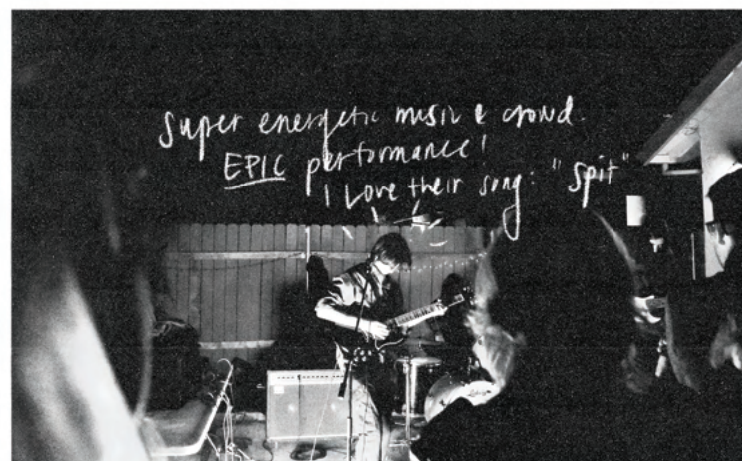 Super energetic music & crowd.
EPIC performance!
I Love their song: "Spit"